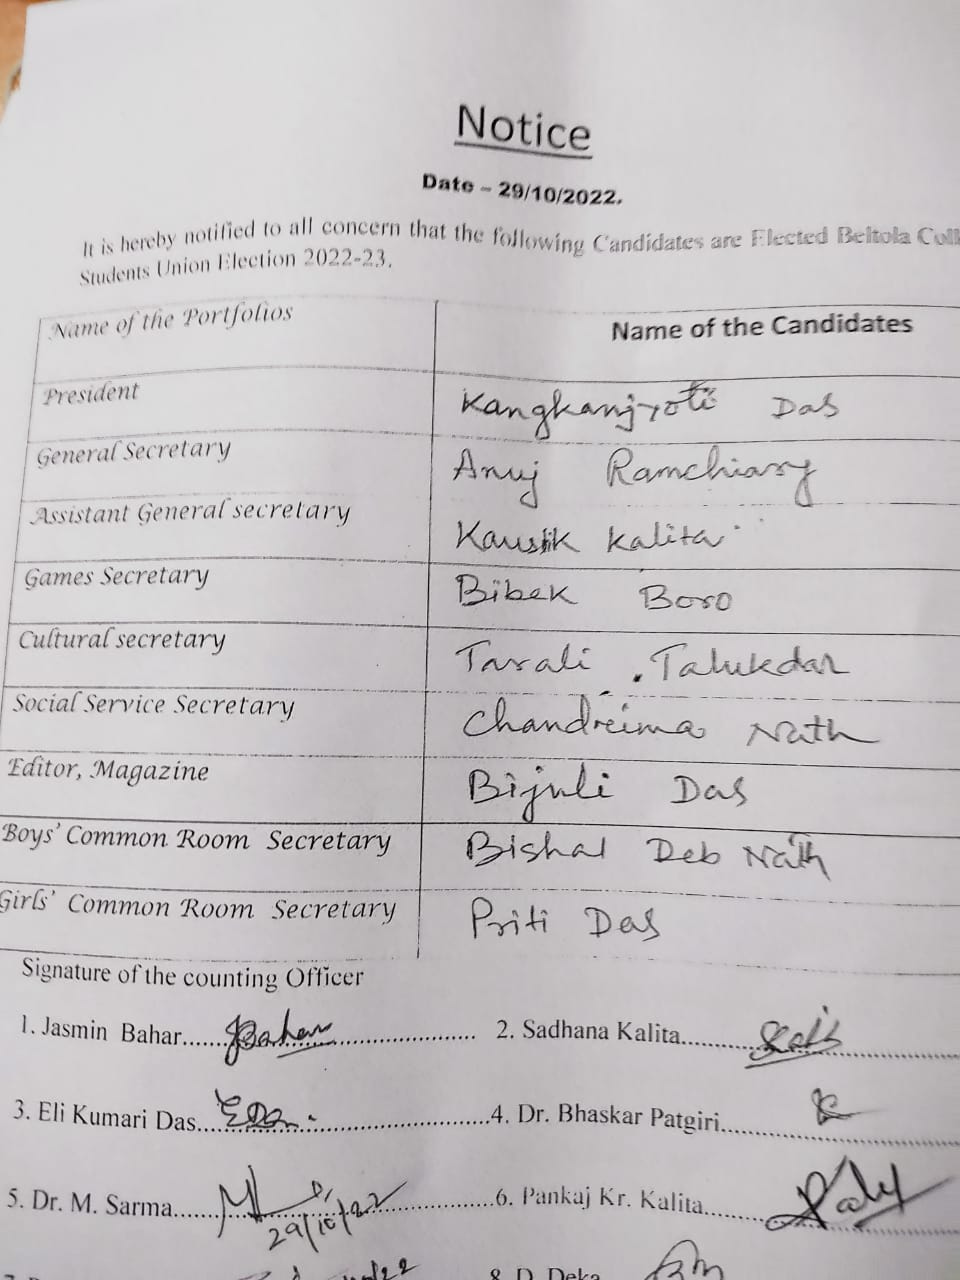 Notice
Date – 29/10/2022.
It is hereby notified to all concern that the following Candidates are Elected Beltola Coll
Students Union Election 2022-23.
Name of the Portfolios Name of the Candidates
President Kangkanjyoti Das
General Secretary Anuj Ramchiary
Assistant General secretary Kaustik Kalita
Games Secretary Bibek Boro
Cultural secretary Tarali Talukdar
Social Service Secretary Chandreima Nath
Editor, Magazine Bijuli Das
Boys' Common Room Secretary Bishal Deb Nath
Girls' Common Room Secretary Priti Das
Signature of the counting Officer
1. Jasmin Bahar....... Bahar .................... 2. Sadhana Kalita............
3. Eli Kumari Das.... EDas .........................4. Dr. Bhaskar Patgiri.....
5. Dr. M. Sarma....... ....................6. Pankaj Kr. Kalita........
29/10/22
8. D. Deka